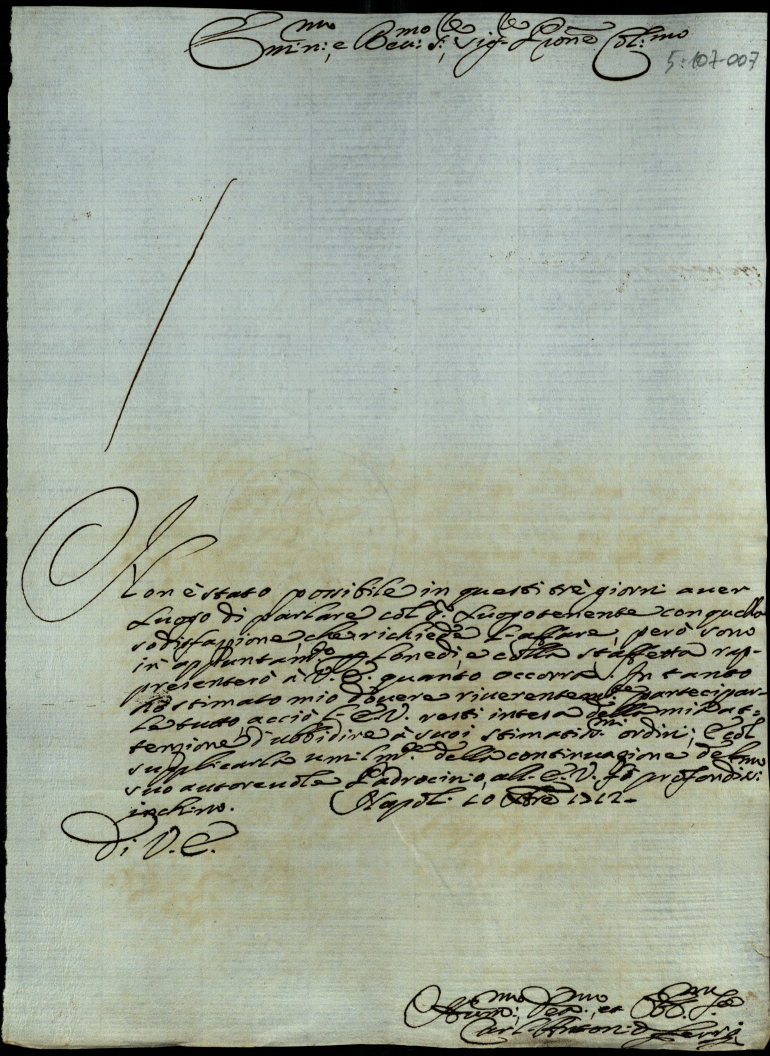 Emin:mo e Reu:mo S:re Sig:re Pron̄e Col:mo
5:107-007
Non è stato possibile in questi trè giorni auer
luogo di parlare col S:r Luogotenente con quella
sodisfazione, che richiede l'affare, però sono
in appuntam:to p̄ lonedi, e colla staffetta rap-
presenterò à V.E. quanto occorra. In tanto
hò stimato mio douere riuerentem:te partecipar-
le tutto acciò l'E.V. resti intesa della mia at-
tenzione d'ubbidire a suoi stimatis:mi ordini; E col
supplicarla umilm:te della continuazione del
suo autoreuole Padrocinio, all'E.V. fò profondis:mo
inchino. Napoli 10 1712-
Di V.E.
Hum:mo Deu:mo et Obb:mo Se:re
Carl'Anton:o